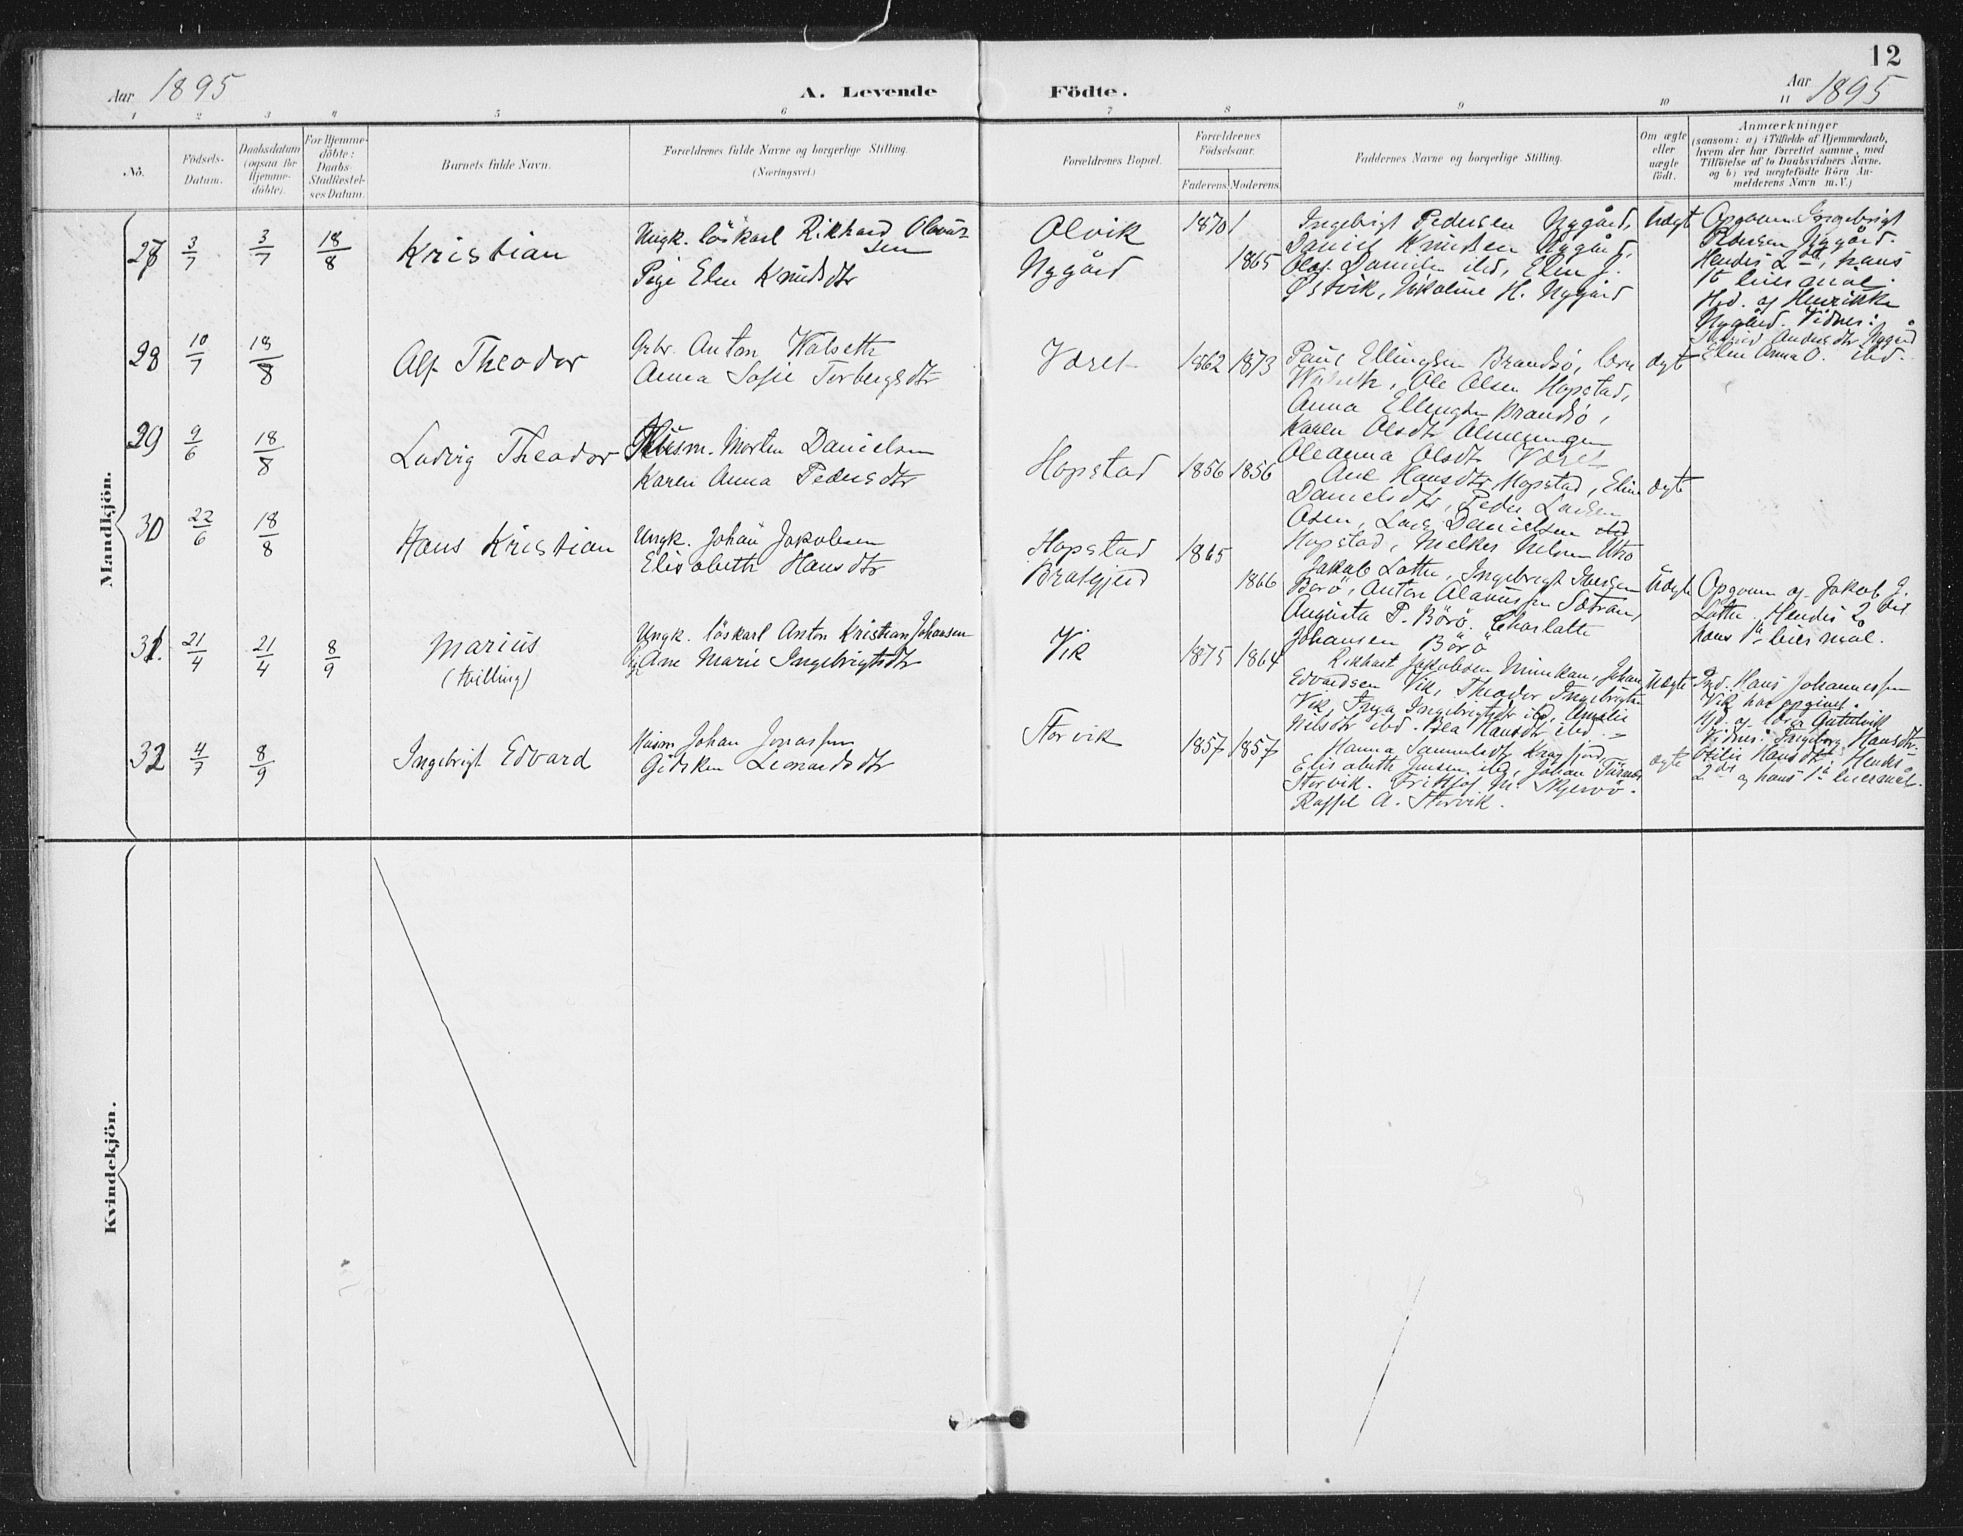 12
Aar 1895
A. Levende Födte.
Aar 1895
1 2 3 4 5 6 7 8 9 10 11
No.
Födsels-Datum.
Daabsdatum (ogsaa for Hjemme-döbte).
For Hjemme-döbte: Daabs Stadfæstel-ses Datum.
Barnets fulde Navn.
Forældrenes fulde Navne og borgerlige Stilling.
(Næringsvei.)
Forældrenes Bopæl.
Forældrenes Födselsaar.
Faderens. Moderens.
Faddernes Navne og borgerlige Stilling.
Om ægte eller uægte födt.
Anmærkninger
(saasom: a) i Tilfælde af Hjemmedaab,
hvem der har forrettet samme, med
Tilföielse af to Daabsvidners Navne.
og b) ved uægtefödte Börn An-
melderens Navn m.V.)
Mandkjön.
27 3/7 3/7 18/8 Kristian
Ungk. löskarl Rikhard Olaus
sen
Pige Elen Knudsdtr
Alvik
Nygård
1870
1865
Ingebrigt Pedersen Nygård,
Daniel Knudsen Nygård,
Olaf Danielsen ibd, Elen J.
Østvik, Nikoline H. Nygård
Uægt
Opgoven Ingebrigt
Pedersen Nygård.
Hendes 2det, hans
1te leiermål.
Hjd. af Henrikke
Nygård. Vidner:
Andersdtr Nygård
Elen Anna O. ibd.
28 10/7 18/8 Alf Theodor
Gbr. Anton Walseth
Anna Sofie Torbergsdtr
Været
1862 1873
Paul Ellingsen Brandsö,
Walseth, Ole Olsen Hopstad,
Anna Ellingsen Brandsö,
Karen Olsdtr Almenningen
Oleanna Olsdtr Været
ægte
29 9/6 18/8 Ludvig Theodor
Husm. Morten Danielsen
Karen Anna Pedersdtr
Hopstad
1856 1856
Ane Hansdtr Hopstad, Eline
Danielsdtr, Peder Larsen
Osen, Lars Danielsen
Hopstad, Melker Nelsen Utrø
ægte
30 22/6 18/8 Hans Kristian
Ungk. Johan Jakobsen
Elisabeth Hansdtr
Hopstad
Bratgjerd
1865
1866
Jakob Lotte, Ingebrigt Iversen
Börö, Anton Olaussen Sætran,
Augusta P. Börö. Charlotte
Johansen Börö
Uægte
Opgoven af Jakob J.
Lotte. Hendes 2det
hans 1te leiermål.
31. 21/4 21/4 8/9 Marius
(tvilling)
Ungk. löskarl Anton Kristian Johansen
Pg Ane Marie Ingebrigtsdtr
Vik
1875 1864
Rikhart Jakobsen, Johan
Edvardsen Vik, Theodor Ingebrigtsen
Vik, Inga Ingebrigtsdtr ibd, Amalie
Nilsdtr ibd. Bea Hansdtr ibd.
Uægte
Ind. Hans Johannessen
Vik har opgivet.
Hjd. af lærer Guttelvik
Vidner: Ingeborg Hansdtr.
Otilie Hansdtr. Hendes
2det og hans 1te leiermål.
32 4/7 8/9 Ingebrigt Edvard
Husm Johan Jonassen
Gidsken Leonardsdtr
Storvik
1857 1857
Hanna Samuelsdtr Kragfjord,
Elisabeth Jensen ibd, Johan
Storvik. Frithjof M. Skjervö.
Raffel A. Storvik.
ægte
Kvindekjön.